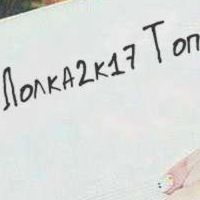 Полка2к17 Топ